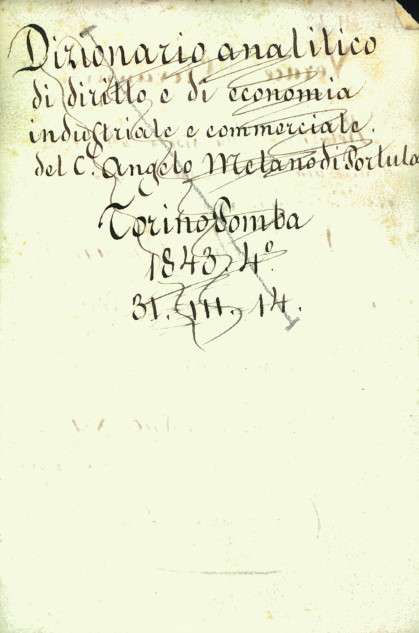 Dizionario analitico
di diritto e di economia
industriale e commerciale.
del C. Angelo Metano di Portula
Torino Pomba
1843. 4º.
31. III. 14.